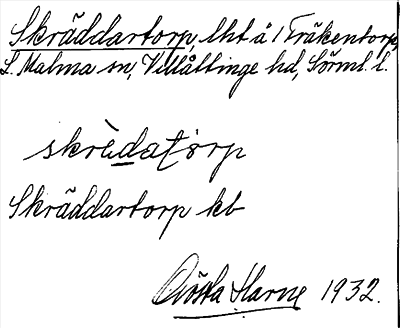 Skräddartorp, lht å 1 Träkentorp,
L. Malma sn, Villåttinge hd, Sörml. l.
skrèdatorp
Skräddartorp kb
Gösta Harne 1932.